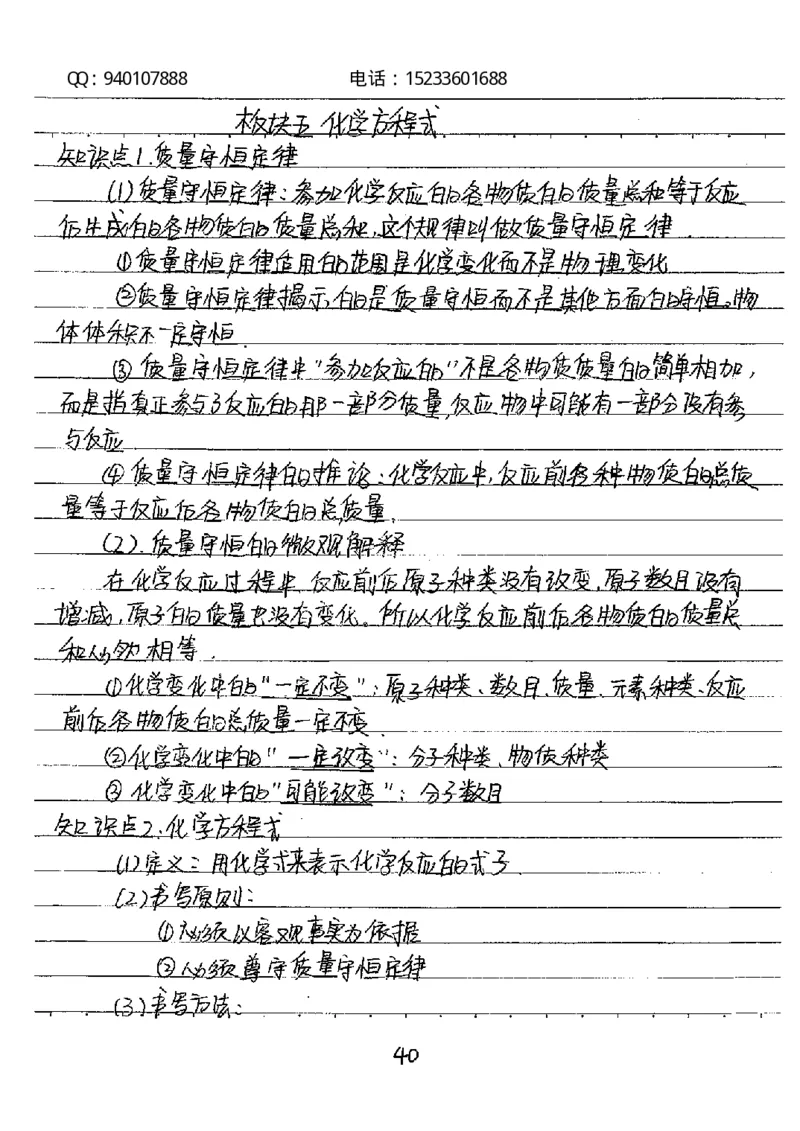 QQ：940107888 电话：15233601688
板块五 化学方程式
知识点1.质量守恒定律
(1)质量守恒定律：参加化学反应的各物质的质量总和等于反应
后生成的各物质的质量总和,这个规律叫做质量守恒定律.
①质量守恒定律适用的范围是化学变化而不是物理变化
②质量守恒定律揭示的是质量守恒而不是其他方面的守恒。物
体体积不一定守恒.
③质量守恒定律中"参加反应的"不是各物质质量的简单相加，
而是指真正参与了反应的那一部分质量,反应物中可能有一部分没有参
与反应.
④质量守恒定律的推论：化学反应中,反应前各种物质的总质
量等于反应后各物质的总质量.
(2).质量守恒的微观解释
在化学反应过程中.反应前后原子种类没有改变,原子数目没有
增减,原子的质量也没有变化。所以化学反应前后各物质的质量总
和必然相等.
①化学变化中的"一定不变"：原子种类、数目、质量、元素种类、反应
前后各物质的总质量一定不变.
②化学变化中的"一定改变"：分子种类、物质种类
③化学变化中的"可能改变"：分子数目
知识点2.化学方程式
(1)定义：用化学式来表示化学反应的式子.
(2)书写原则：
①必须以客观事实为依据
②必须尊守质量守恒定律
(3)书写方法：
40